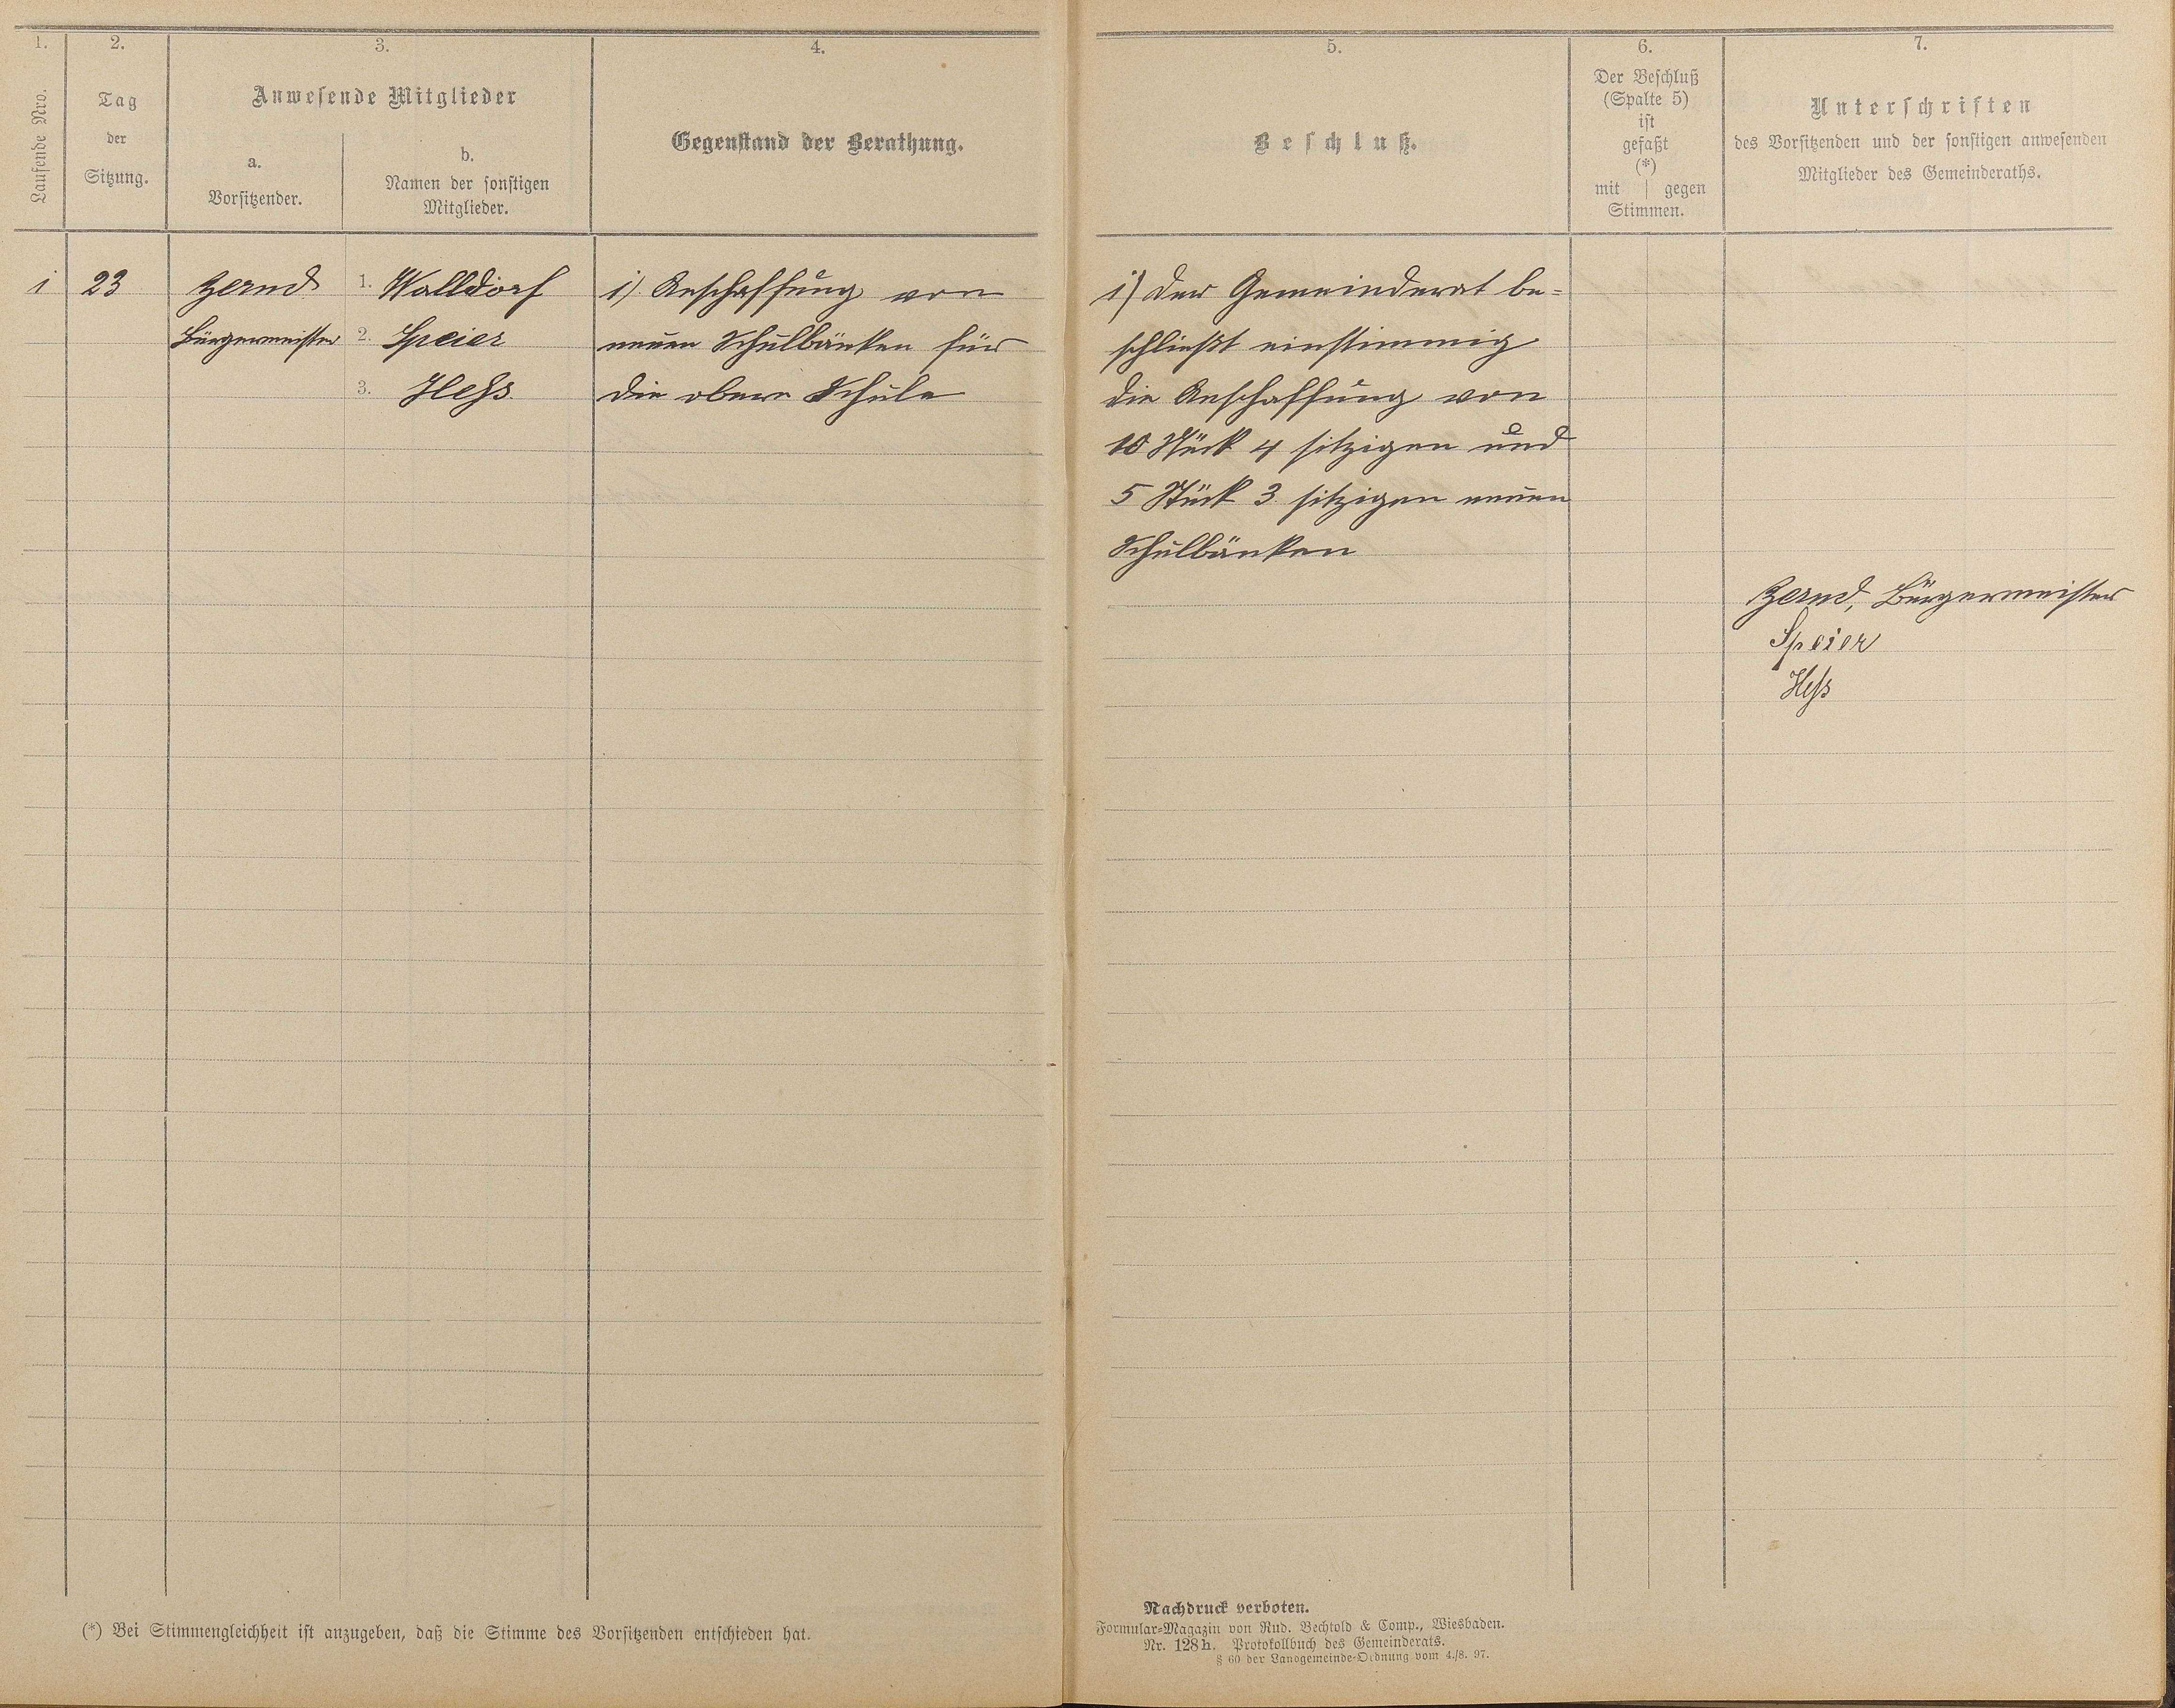 1.
2.
3.
4.
Laufende Nro.
Tag
der
Sitzung.
Anwesende Mitglieder
a.
Vorsitzender.
b.
Namen der sonstigen
Mitglieder.
Gegenstand der Berathung.
1
23
Zernd
Bürgermeister
1. Walldorf
2. Speier
3. Heß
1) Anschaffung von
neuen Schulbänken für
die obere Schule
(*) Bei Stimmengleichheit ist anzugeben, daß die Stimme des Vorsitzenden entschieden hat.
5.
6.
7.
Beschluß.
Der Beschluß
(Spalte 5)
ist
gefaßt
(*)
mit | gegen
Stimmen.
Unterschriften
des Vorsitzenden und der sonstigen anwesenden
Mitglieder des Gemeinderaths.
1) Der Gemeinderat be=
schließt einstimmig
die Anschaffung von
10 Stück 4 sitzigen und
5 Stück 3 sitzigen neuen
Schulbänken
Zernd, Bürgermeister
Speier
Heß
Nachdruck verboten.
Formular-Magazin von Rud. Bechtold & Comp., Wiesbaden.
Nr. 128h. Protokollbuch des Gemeinderats.
§ 60 der Landgemeinde-Ordnung vom 4./8. 97.